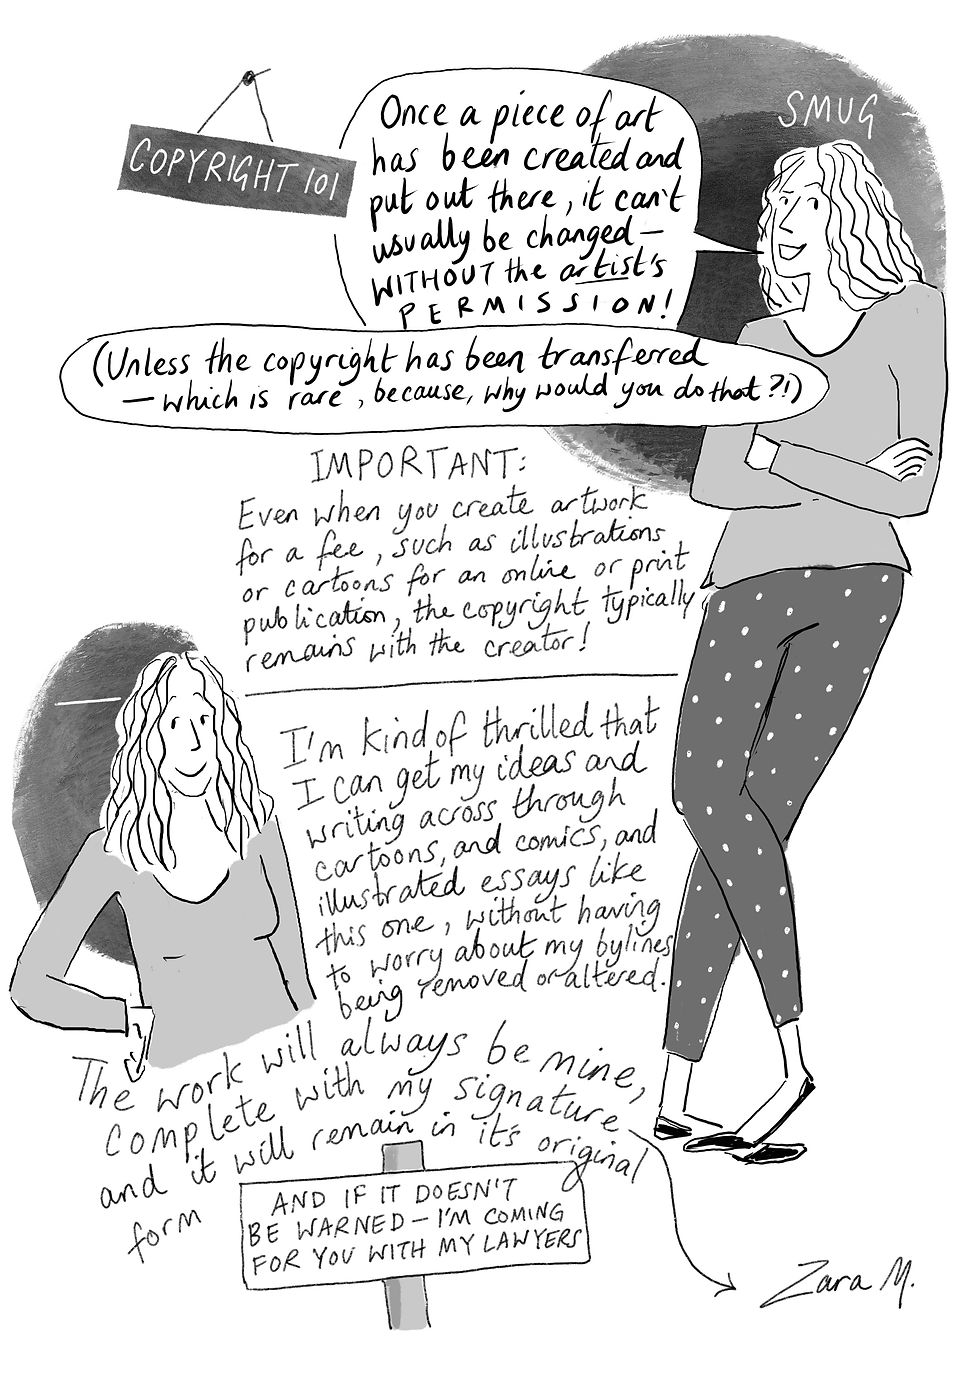 COPYRIGHT 101
SMUG
Once a piece of art
has been created and
put out there, it can't
usually be changed —
WITHOUT the artist's
PERMISSION!
(Unless the copyright has been transferred
— which is rare, because, why would you do that?!)
IMPORTANT:
Even when you create artwork
for a fee, such as illustrations
or cartoons for an online or print
publication, the copyright typically
remains with the creator!
I'm kind of thrilled that
I can get my ideas and
writing across through
cartoons, and comics, and
illustrated essays like
this one, without having
to worry about my bylines
being removed or altered.
The work will always be mine,
complete with my signature
and it will remain in it's original
form
AND IF IT DOESN'T
BE WARNED — I'M COMING
FOR YOU WITH MY LAWYERS
Zara M.